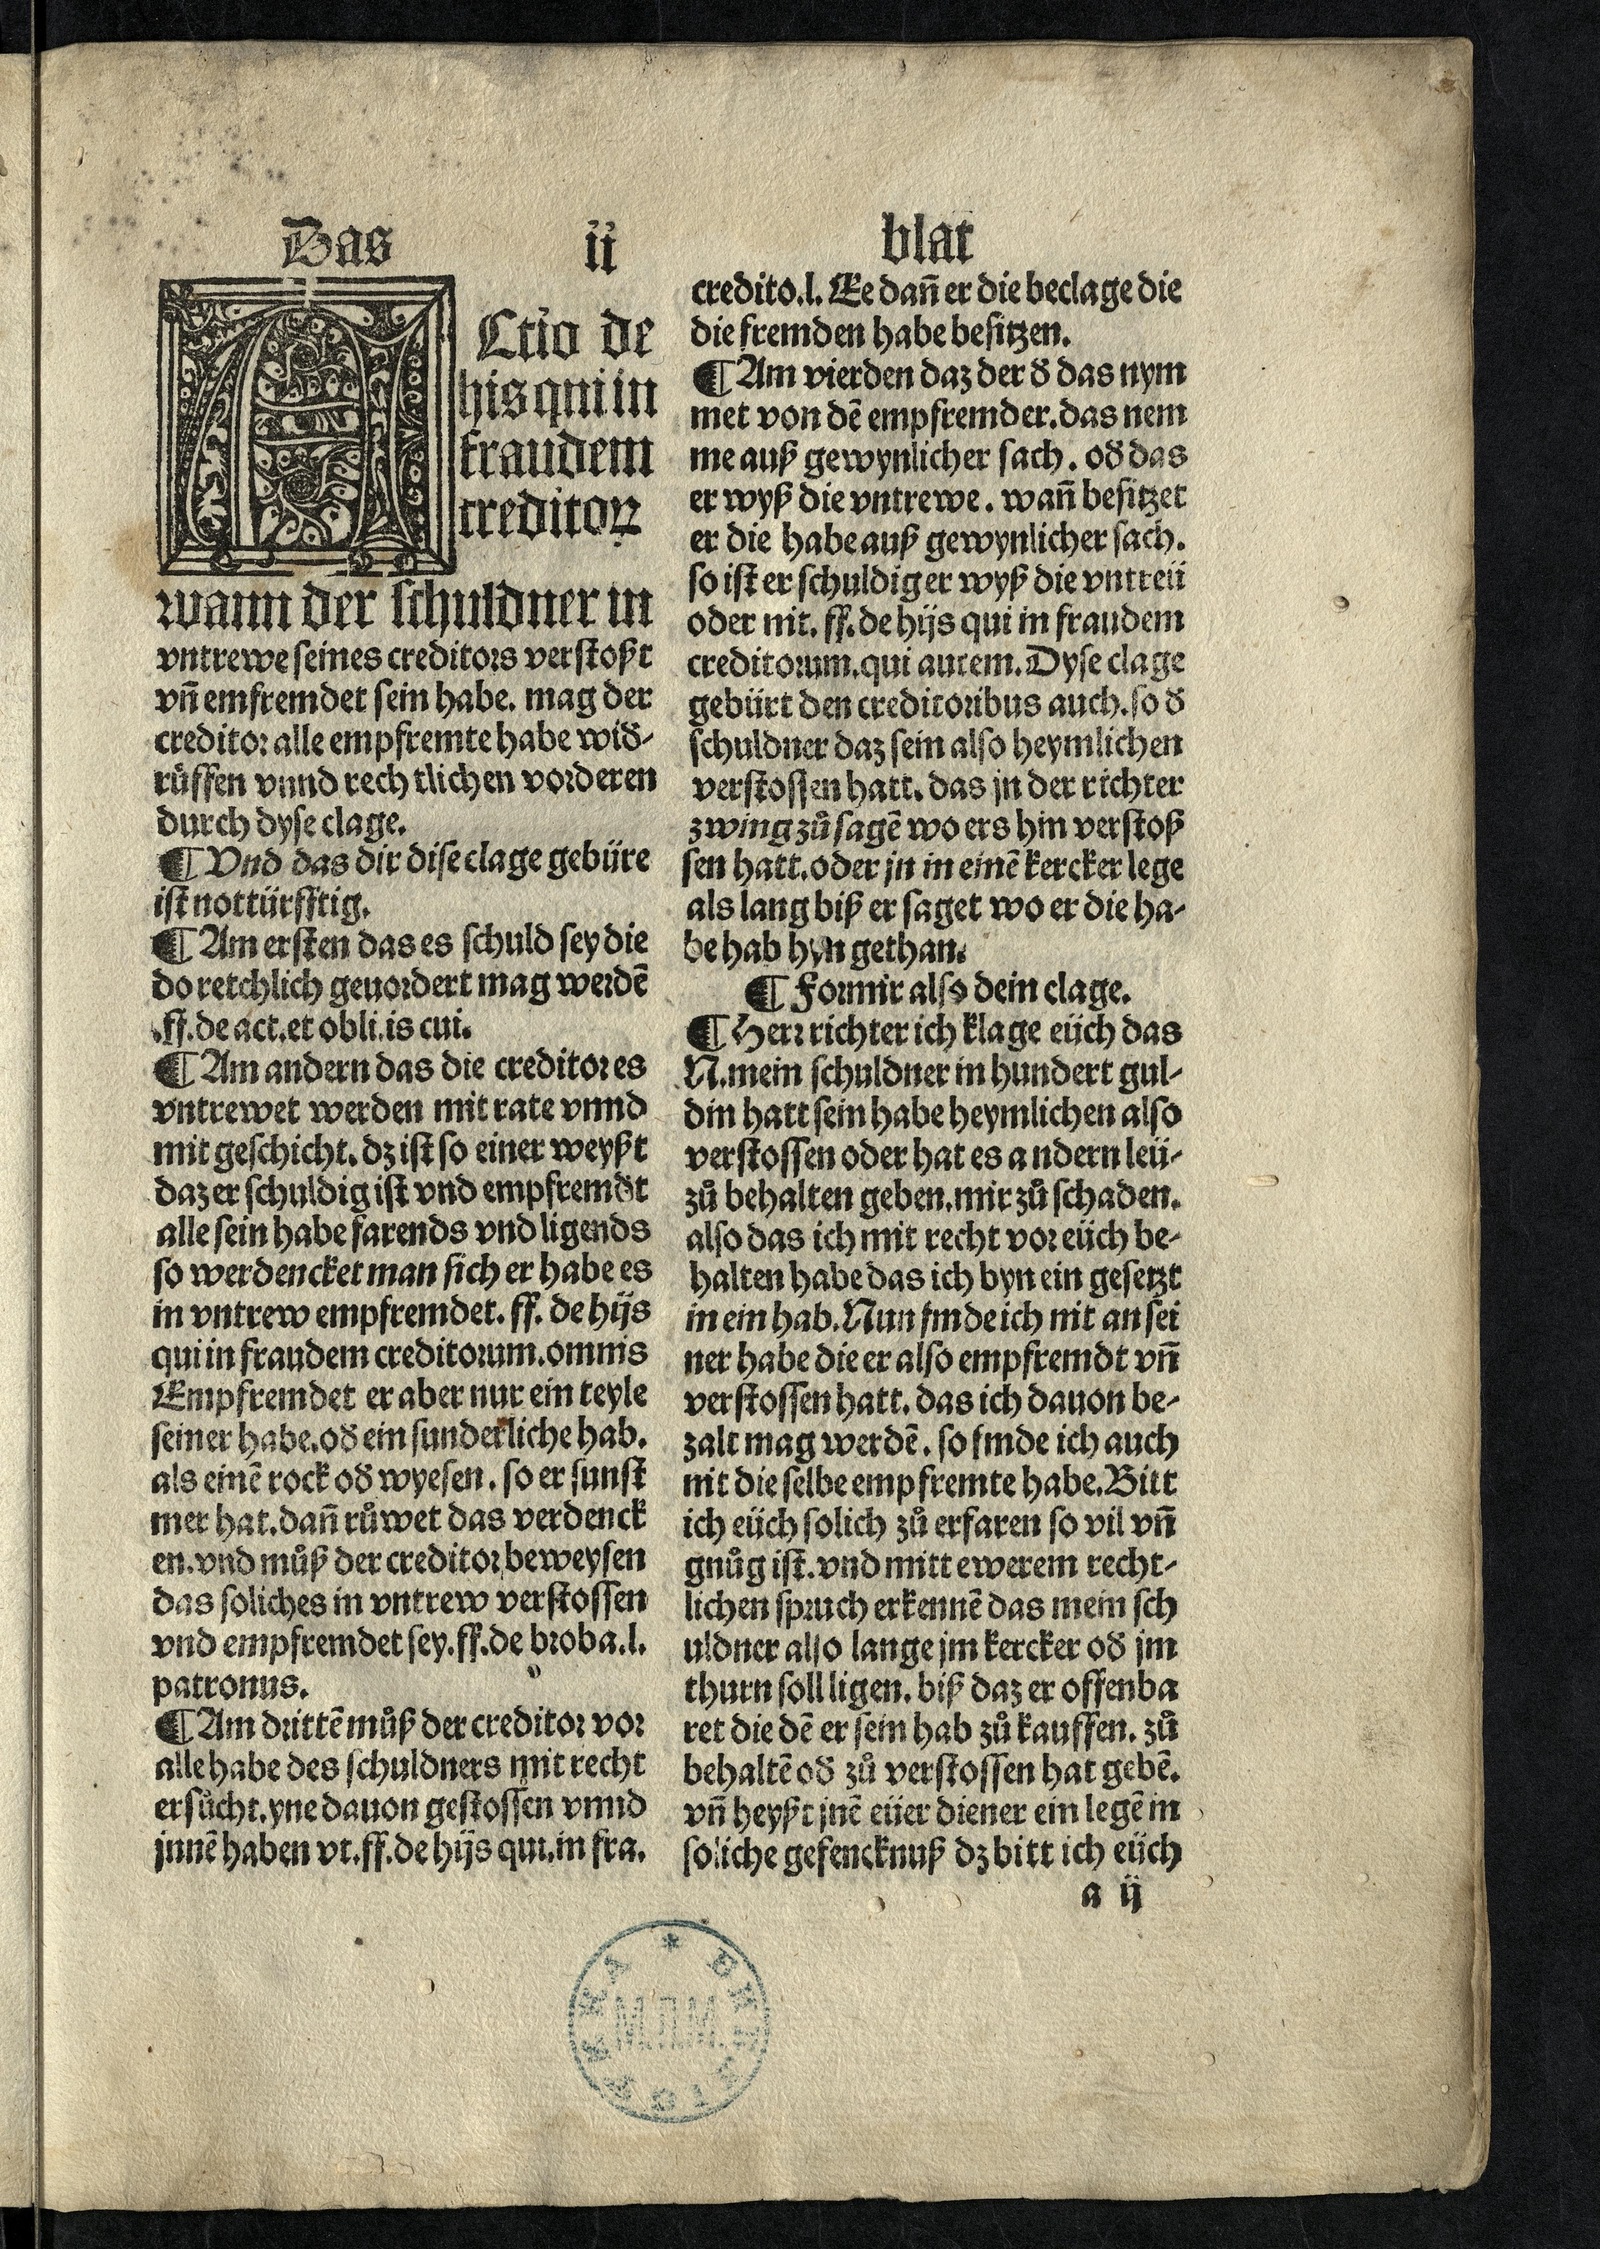 Das ii blat
ACtio de
his qni in
fraudem
creditoꝝ
wann der schuldner in
vntrewe seines creditors verstoßt
vñ emfremdet sein habe. mag der
creditor alle empfremte habe wiđ-
růffen vnnd rech tlichen vorderen
durch dyse clage.
¶ Vnd das dir dise clage gebüre
ist nottürfftig.
¶ Am ersten das es schuld sey die
do retchlich geuordert mag werdē
.ff. de act. et obli. is cui.
¶ Am andern das die creditores
vntrewet werden mit rate vnnd
mit geschicht. dz ist so einer weyßt
daz er schuldig ist vnd empfremđt
alle sein habe farends vnd ligends
so werdencket man sich er habe es
in vntrew empfremdet. ff. de hijs
qui in fraudem creditorum. omnis
Empfremdet er aber nur ein teyle
seiner habe. ođ ein sunderliche hab.
als einē rock ođ wyesen. so er sunst
mer hat. dañ růwet das verdenck
en. vnd můß der creditor beweysen
das soliches in vntrew verstossen
vnd empfremdet sey. ff. de broba. l.
patronus.
¶ Am drittē můß der creditor vor
alle habe des schuldners mit recht
ersůcht. yne dauon gestossen vnnd
jnnē haben vt. ff. de hijs qui. in fra.
credito. l. Ee dañ er die beclage die
die fremden habe besitzen.
¶ Am vierden daz der đ das nym
met von dē empfremder. das nem
me auß gewynlicher sach. ođ das
er wyß die vntrewe. wañ besitzet
er die habe auß gewynlicher sach.
so ist er schuldig er wyß die vntreü
oder nit. ff. de hijs qui in fraudem
creditorum. qui autem. Dyse clage
gebürt den creditoribus auch. so đ
schuldner daz sein also heymlichen
verstossen hatt. das jn der richter
zwing zů sagē wo ers hin verstoß
sen hatt. oder jn in einē kercker lege
als lang biß er saget wo er die ha-
be hab hyn gethan.
¶ Formir also dein clage.
¶ Herr richter ich klage eüch das
N. mein schuldner in hundert gul-
din hatt sein habe heymlichen also
verstossen oder hat es andern leü-
zů behalten geben. mir zů schaden.
also das ich mit recht vor eüch be-
halten habe das ich byn ein gesetzt
in ein hab. Nun finde ich nit an sei
ner habe die er also empfremdt vñ
verstossen hatt. das ich dauon be-
zalt mag werdē. so finde ich auch
nit die selbe empfremte habe. Bitt
ich eüch solich zů erfaren so vil vñ
gnůg ist. vnd mitt ewerem recht-
lichen spruch erkennē das mein sch
uldner also lange jm kercker ođ jm
thurn soll ligen. biß daz er offenba
ret die dē er sein hab zů kauffen. zů
behaltē ođ zů verstossen hat gebē.
vñ heyßt jnē eüer diener ein legē in
soliche gefencknuß dz bitt ich eüch
a ij